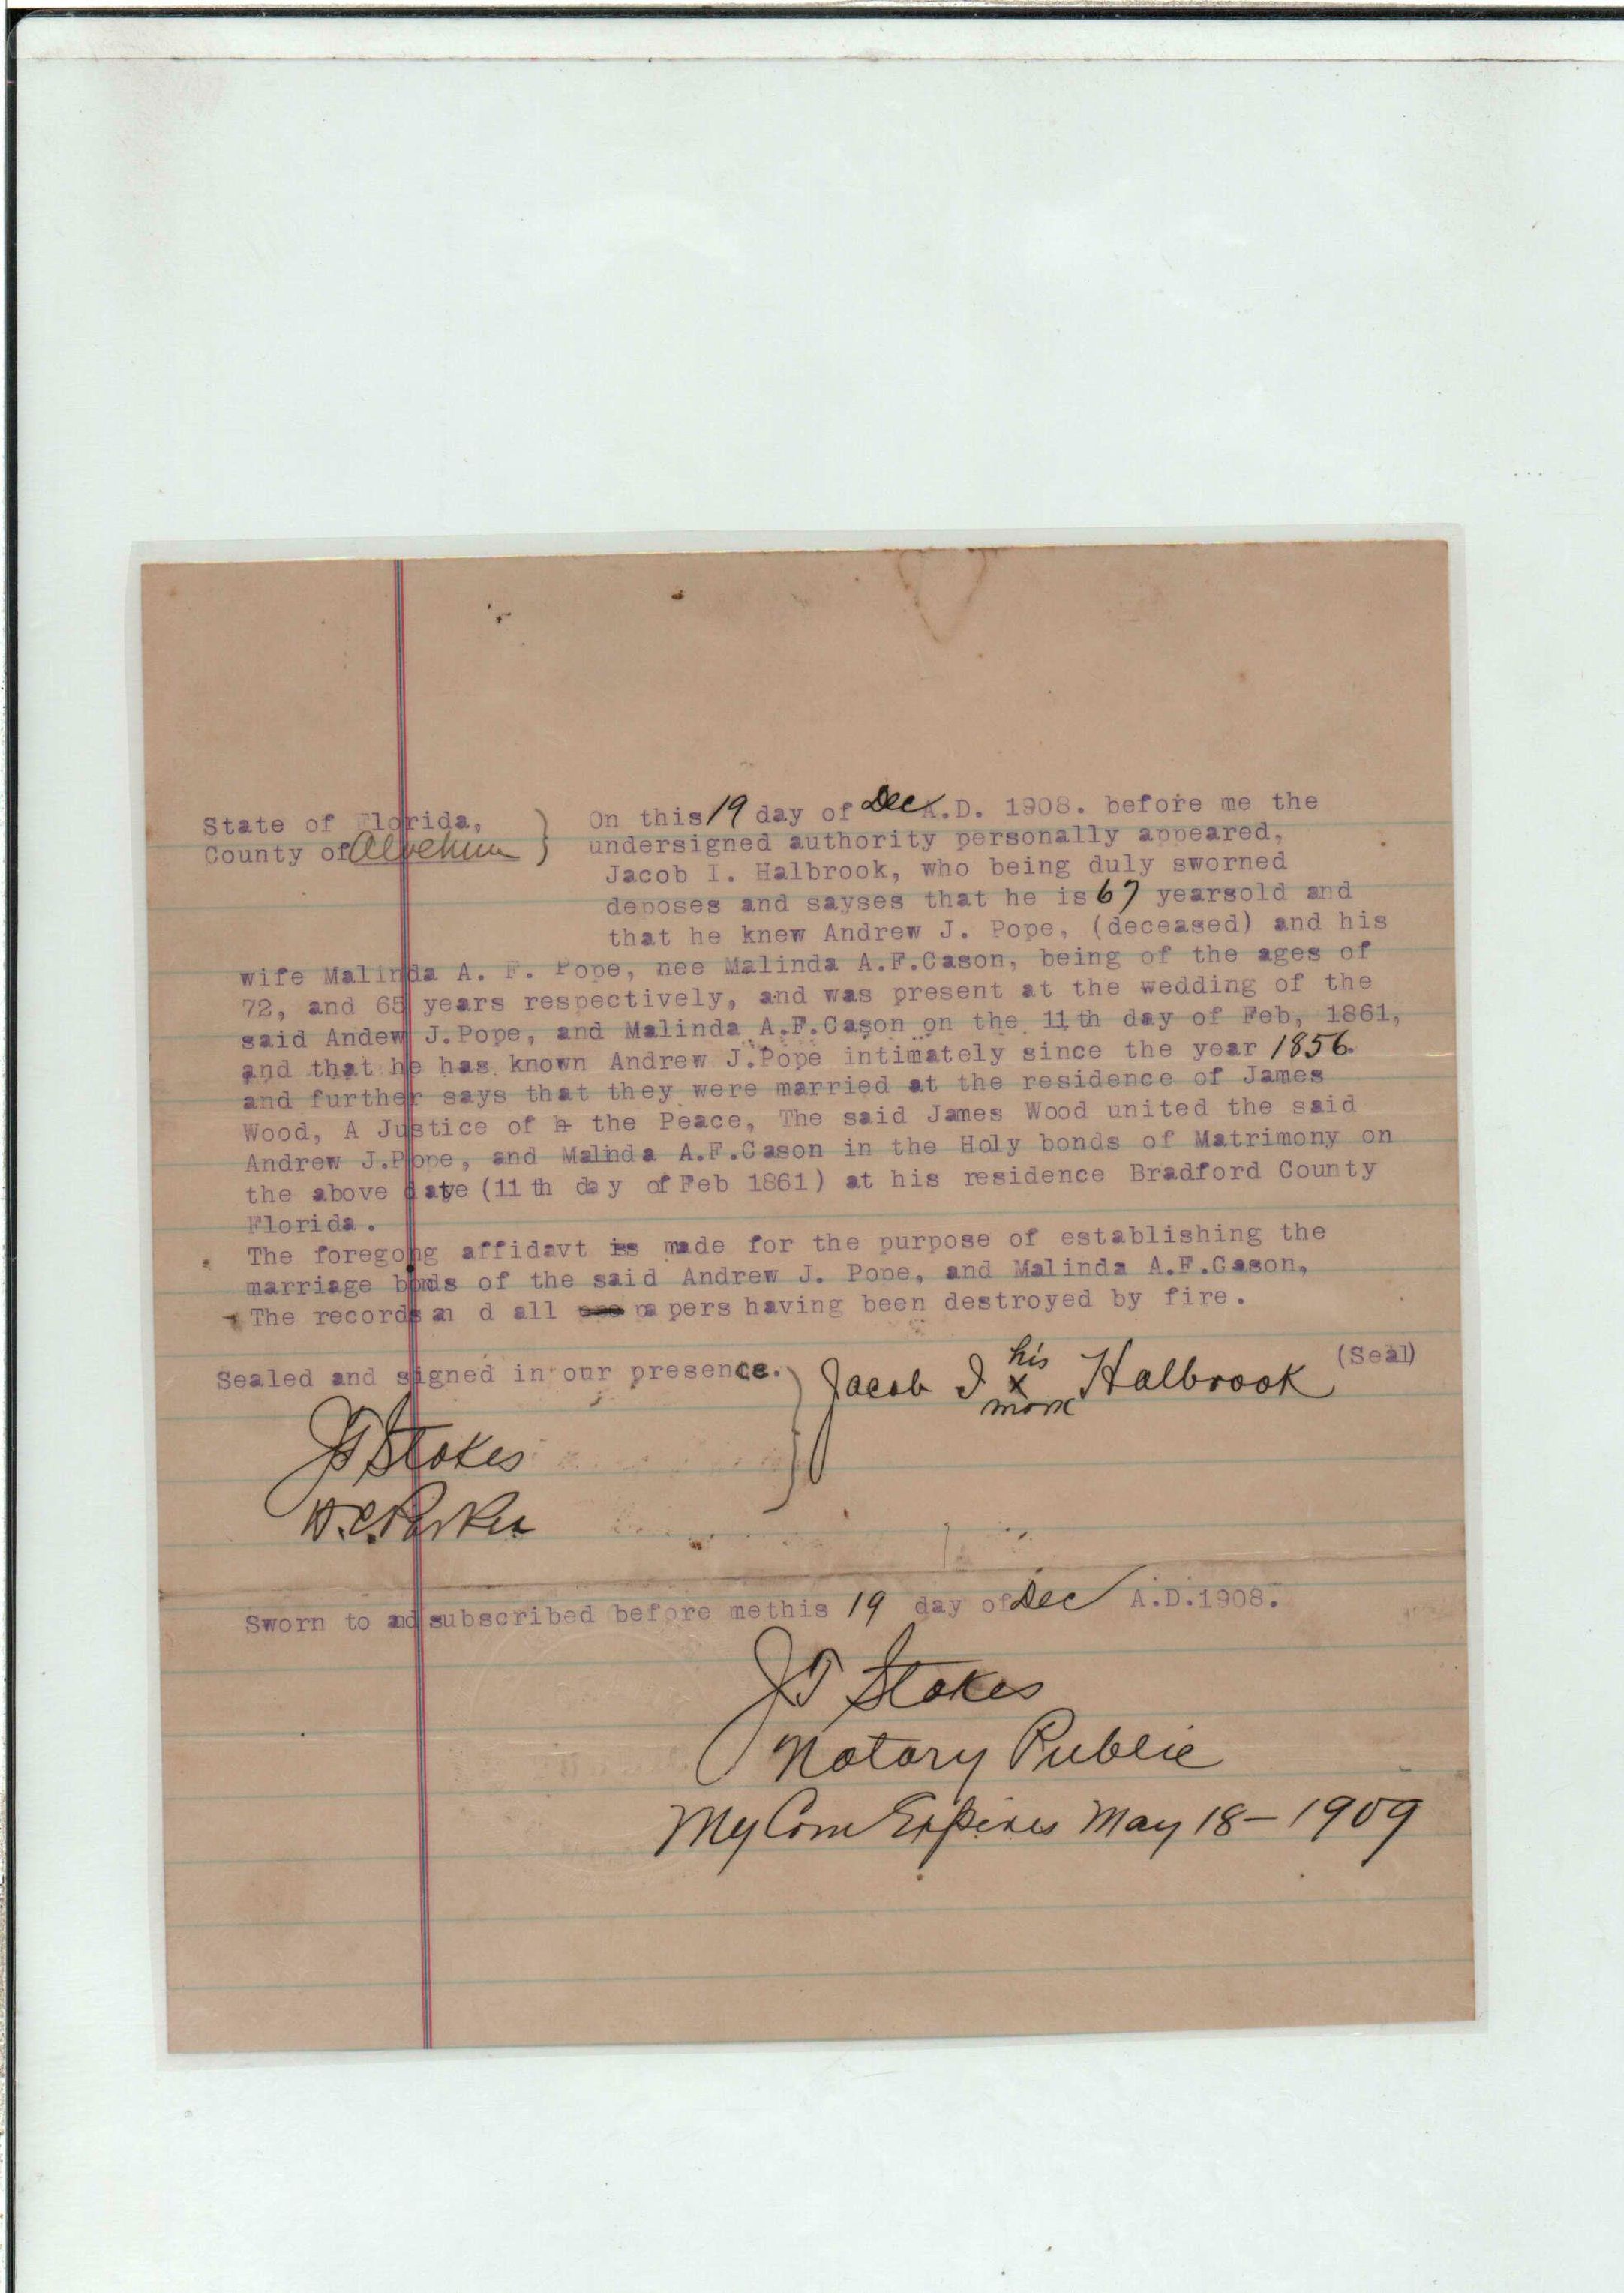 State of Florida,
County of
On this 19 day of Dec A.D. 1908. before me the
undersigned authority personally appeared,
Jacob I. Halbrook, who being duly sworned
deposes and sayses that he is 67 yearsold and
that he knew Andrew J. Pope, (deceased) and his
wife Malinda A. F. Pope, nee Malinda A.F.Cason, being of the ages of
72, and years respectively, and was present at the wedding of the
said Andew J.Pope, and Malinda A.F.Cason on the 11th day of Feb, 1861,
and that he has known Andrew J.Pope intimately since the year 1856.
and further says that they were married at the residence of James
Wood, A Justice of the Peace, The said James Wood united the said
Andrew J.Pope, and Malinda A.F.Cason in the Holy bonds of Matrimony on
the above date (11th day of Feb 1861) at his residence Bradford County
Florida.
The foregong affidavt is made for the purpose of establishing the
marriage bonds of the said Andrew J. Pope, and Malinda A.F.Cason,
The records an d all papers having been destroyed by fire.
Sealed and signed in our presence.
Jacob I his x mark Halbrook (Seal)
JT Stokes
Parker
Sworn to and subscribed before methis 19 day of Dec A.D.1908.
JT Stokes
Notary Public
My Com Expires May 18-1909